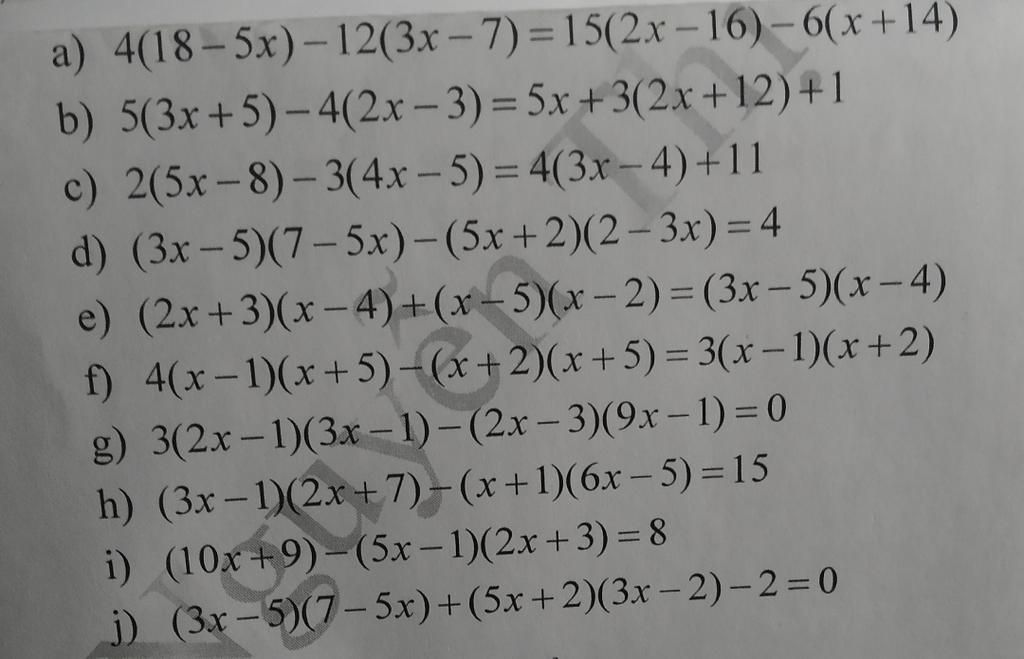 a) 4(18−5x)−12(3x−7)=15(2x−16)−6(x+14)
b) 5(3x+5)−4(2x−3)=5x+3(2x+12)+1
c) 2(5x−8)−3(4x−5)=4(3x−4)+11
d) (3x−5)(7−5x)−(5x+2)(2−3x)=4
e) (2x+3)(x−4)+(x−5)(x−2)=(3x−5)(x−4)
f) 4(x−1)(x+5)−(x+2)(x+5)=3(x−1)(x+2)
g) 3(2x−1)(3x−1)−(2x−3)(9x−1)=0
h) (3x−1)(2x+7)−(x+1)(6x−5)=15
i) (10x+9)−(5x−1)(2x+3)=8
j) (3x−5)(7−5x)+(5x+2)(3x−2)−2=0
Nguyễn Thị